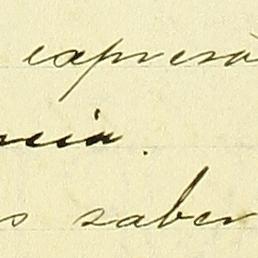 expresó
ncia.
s saber